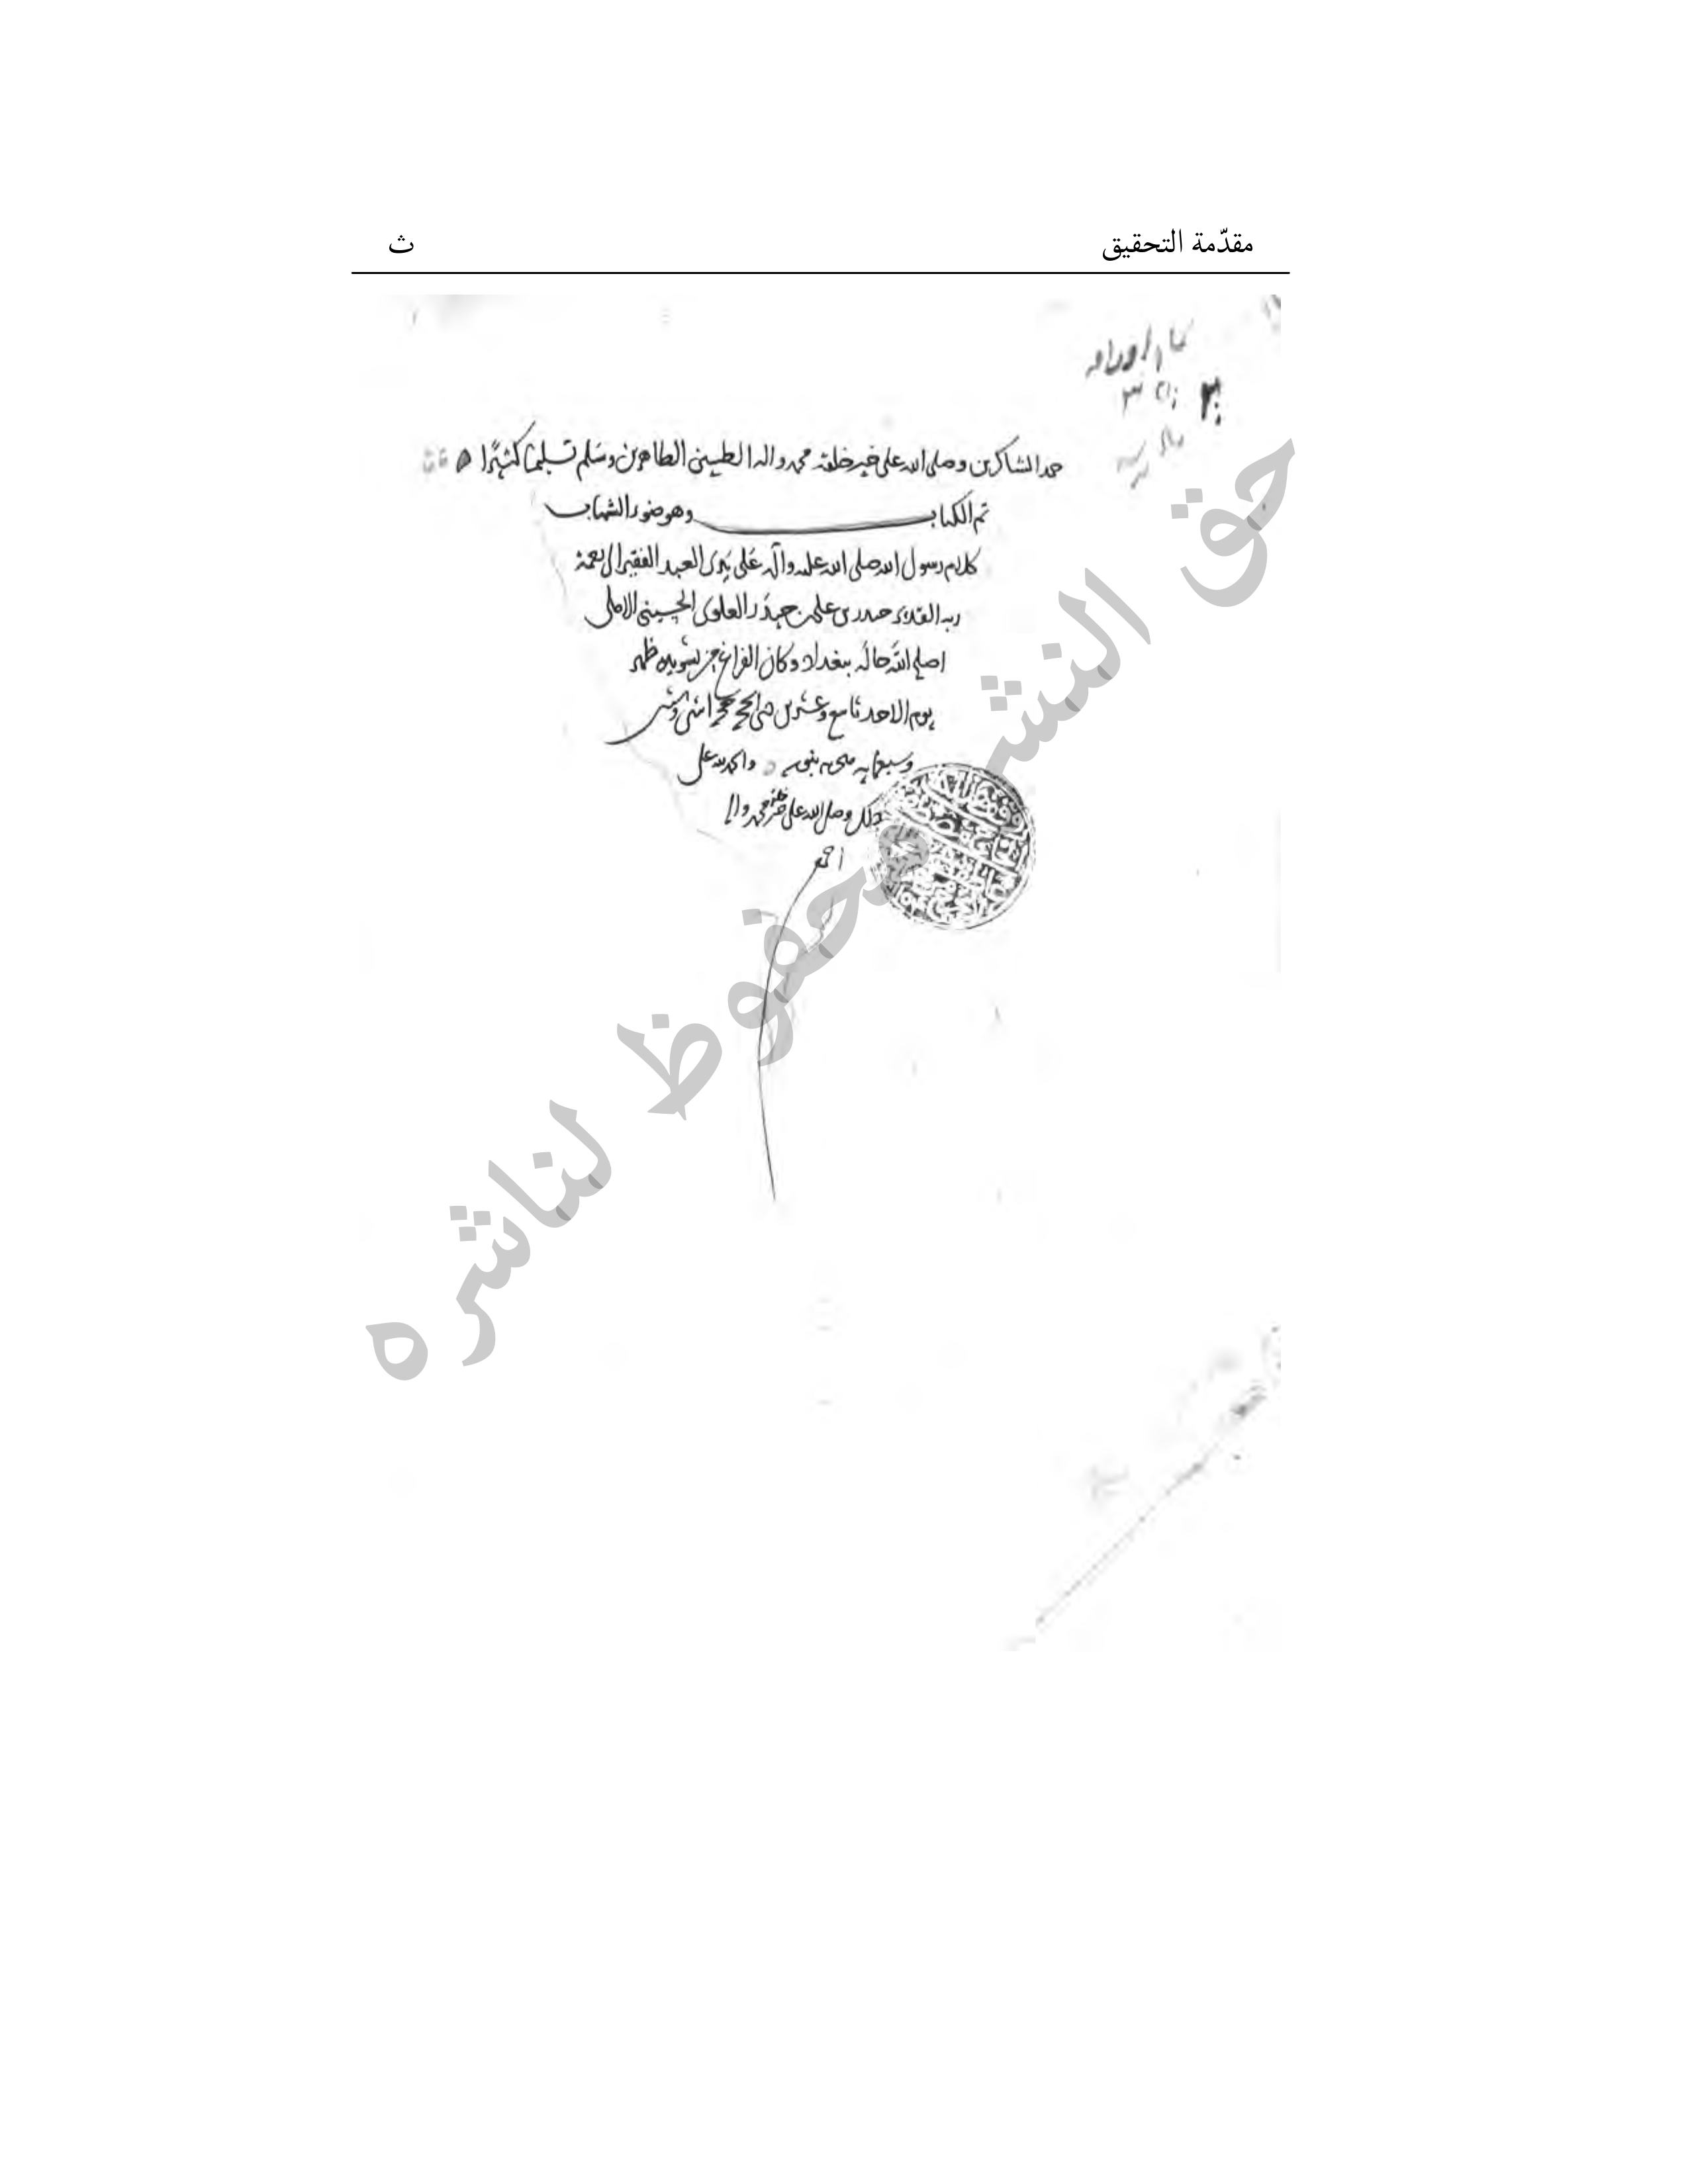 مقدّمة التحقيق ث
حمد الشاكرين وصلى الله على خير خلقه محمد واله الطيبين الطاهرين وسلم تسليما كثيرا
تم الكتاب وهو ضوء الشهاب
كلام رسول الله صلى الله عليه وآله على يدى العبد الفقير الى رحمة
ربه القدير حيدر بن على بن حيدر العلوى الحسينى الاملى
اصلح الله حاله ببغداد وكان الفراغ من تسويده ظهر
يوم الاحد تاسع وعشرين ذى الحجه حجة اثنى وستين
وسبعمايه هجريه نبويه والحمد لله على
ذلك وصلى الله على خير خلقه محمد واله
اجمع
حق النشر محفوظ لناشره